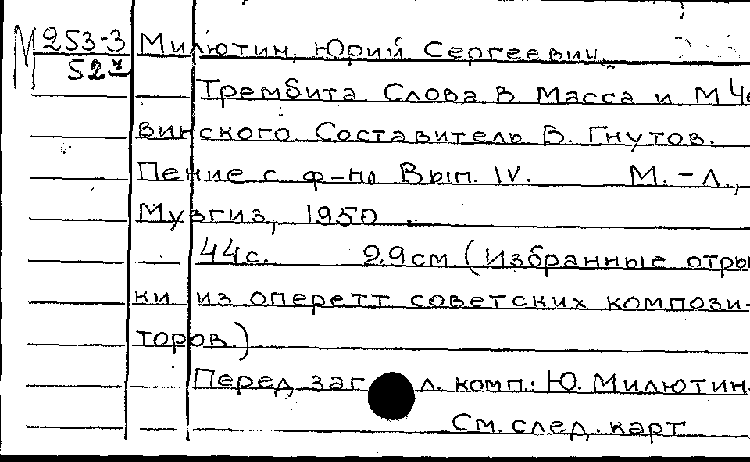 М 253-3 Милютин, Юрий Сергеевич.
52ч
Трембита Слова В Масса и М Че
винского. Составитель В. Гнутов.
Пение с ф-но Вып. IV. М.-Л.,
Музгиз, 1950.
44с. 29см (Избранные отры
ки из оперетт советских компози-
торов.)
Перед заг л. комп.: Ю. Милютин.
См. след. карт